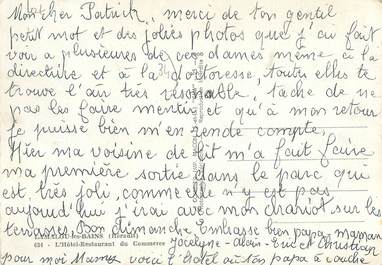 Mon cher Patrick, merci de ton gentil
petit mot et des jolies photos que j'ai fait
voir a plusieures de ces dames même à la
directrice et à la doctoresse, toutes elles te
trouve l'air très raisonable, tâche de ne
pas les faire mentir et qu'à mon retour
je puisse bien m'en rende compte.
Hier ma voisine de lit m'a fait faire
ma première sortie dans le parc qui
est très joli, comme elle n'y est pas
aujourd'hui j'irai avec mon chariot sur les
terrasses. Bon dimanche Embrasse bien papa, maman
LAMALOU-les-BAINS (Hérault)
634 - L'Hôtel-Restaurant du Commerce
Jocelyne - Alain - Eric et Christian
pour moi voici l'Hotel où ton papa a couché